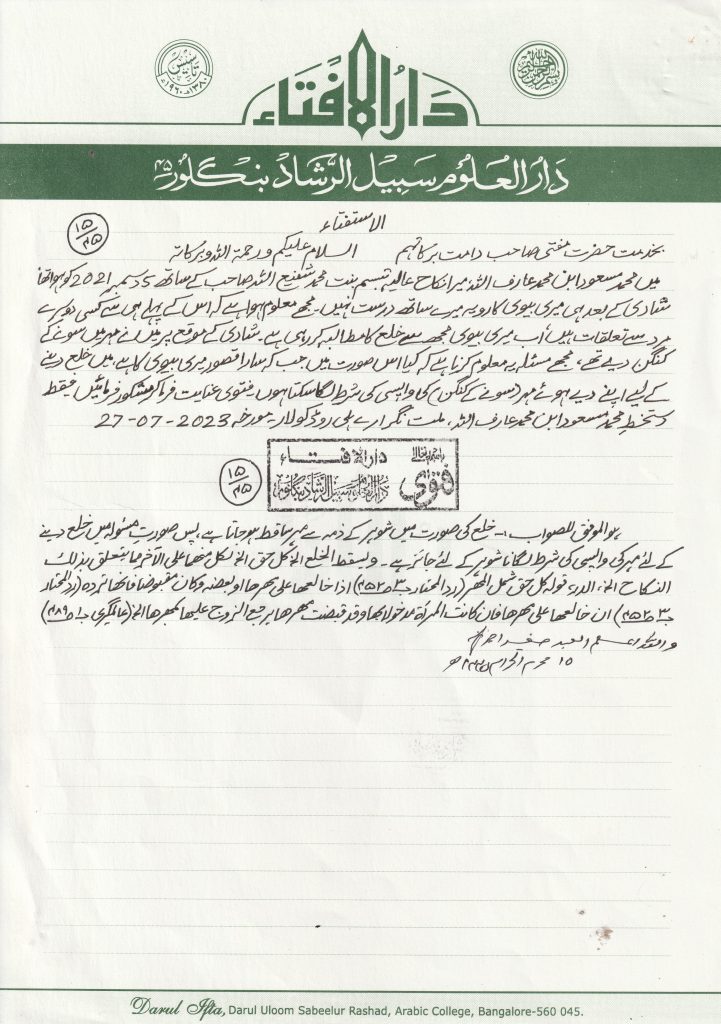 تاسیس ۱۳۸۰ھ ۱۹۶۰ء
دَارُالاِفْتَاء
دَارُ العُلُوْم سَبِیْل الرَّشَاد بنگلور ۴۵
الاستفتاء
۱۵
۴۵
بخدمت حضرت مفتی صاحب دامت برکاتہم السلام علیکم ورحمۃ اللہ وبرکاتہ
میں محمد مسعود ابن محمد عارف اللہ، میرا نکاح عالیہ تبسم بنت محمد شفیع اللہ صاحب کے ساتھ 5 دسمبر 2021 کو ہوا تھا
شادی کے بعد ہی میری بیوی کا رویہ میرے ساتھ درست نہیں۔ مجھے معلوم ہوا ہے کہ اس کے پہلے ہی سے کسی دوسرے
مرد سے تعلقات ہیں، اب میری بیوی مجھ سے خلع کا مطالبہ کر رہی ہے۔ شادی کے موقع پر میں نے مہر میں سونے کے
کنگن دیے تھے، مجھے مسئلہ یہ معلوم کرنا ہے کہ کیا اس صورت میں جب کہ سارا قصور میری بیوی کا ہے، میں خلع دینے
کے لیے اپنے دیے ہوئے مہر (سونے کے کنگن) کی واپسی کی شرط لگا سکتا ہوں۔ فتویٰ عنایت فرما کر مشکور فرمائیں۔ فقط
دستخط محمد مسعود ابن محمد عارف اللہ، ملت نگر ارے ہلی روڈ کولار۔ مورخہ 2023 - 07 - 27
دارالافتاء
فتویٰ
دارالعلوم سبیل الرشاد بنگلور
۱۵
۴۵
ہو الموفق للصواب :۔ خلع کی صورت میں شوہر کے ذمہ سے مہر ساقط ہو جاتا ہے، پس صورت مسئولہ میں خلع دینے
کے لئے مہر کی واپسی کی شرط لگانا شوہر کے لئے جائز ہے۔ ویسقط الخلع الخ کل حق الخ لکل منھما علی الآخر مما یتعلق بذلک
النکاح الخ، الدر، قولہ کل حق شمل المھر (ردالمحتار ج۳ ص۴۵۲) اذا خالعھا علی مھرھا او بعضہ وکان مقبوضا فانھا تردہ (ردالمحتار
ج۳ ص۴۵۲) ان خالعھا علی مھرھا فان کانت المرأۃ مدخولا بھا وقد قبضت مھرھا یرجع الزوج علیھا بمھرھا الخ (عالمگیری ج۱ ص۴۸۹)
واللہ اعلم العبد صغیر احمد
۱۵ محرم الحرام ۱۴۴۵ھ
Darul Ifta, Darul Uloom Sabeelur Rashad, Arabic College, Bangalore-560 045.